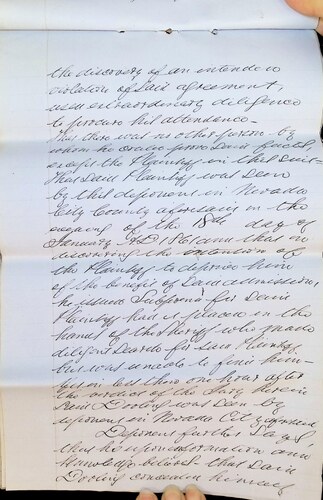 the discovery of an intended
violation of said agreement,
used extraordinary diligence
to procure his attendance—
That there was no other person by
whom he could prove said facts
except the Plaintiff in this Suit—
That said Plaintiff was seen
by this deponent in Nevada
City County aforesaid in the
evening of the 18th day of
January AD 1861 and that on
discovering the intention of
the Plaintiff to deprive him
of the benefit of said admissions
he issued Subpoena for said
Plaintiff had it placed in the
hands of the Sheriff who made
diligent search for said Plaintiff
but was unable to find him—
but in less than one hour after
the verdict of the Jury herein
said Dooling was seen by
deponent in Nevada City
Deponent further Says
that he upon information and
knowledge believes that said
Dooling concealed himself